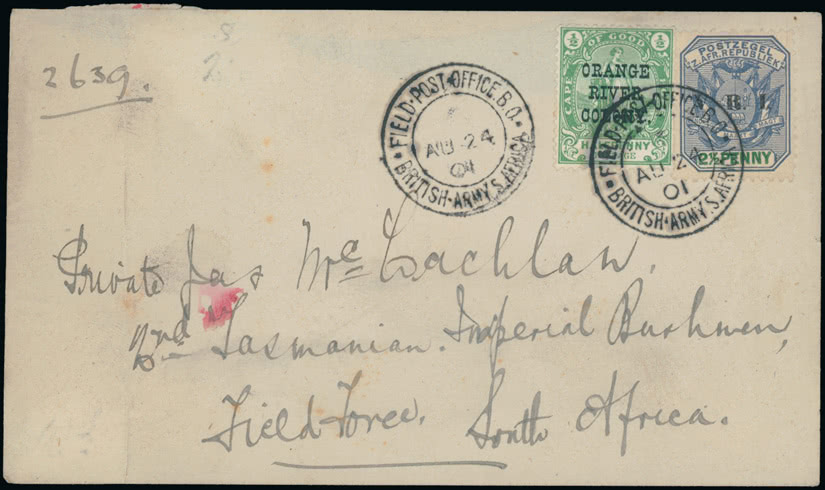 2639.
½ OF GOOD ½
CAPE
ORANGE
RIVER
COLONY.
HALFPENNY
POSTZEGEL
Z. AFR. REPUBLIEK
V. R. I.
2½ PENNY
FIELD·POST·OFFICE.B.O.
AU 24
01
BRITISH·ARMY.S.AFRICA
FIELD·POST·OFFICE.B.O.
AU 24
01
BRITISH·ARMY.S.AFRICA
Private Jas McLachlan,
2nd Tasmanian. Imperial Bushmen,
Field Force. South Africa.